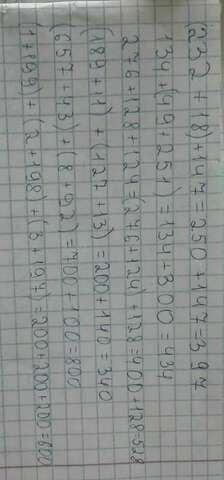 (232+18)+147=250+147=397
134+(49+251)=134+300=434
276+128+124=(276+124)+128=400+128=528
(189+11)+(127+13)=200+140=340
(657+43)+(8+92)=700+100=800
(1+199)+(2+198)+(3+197)=200+200+200=600